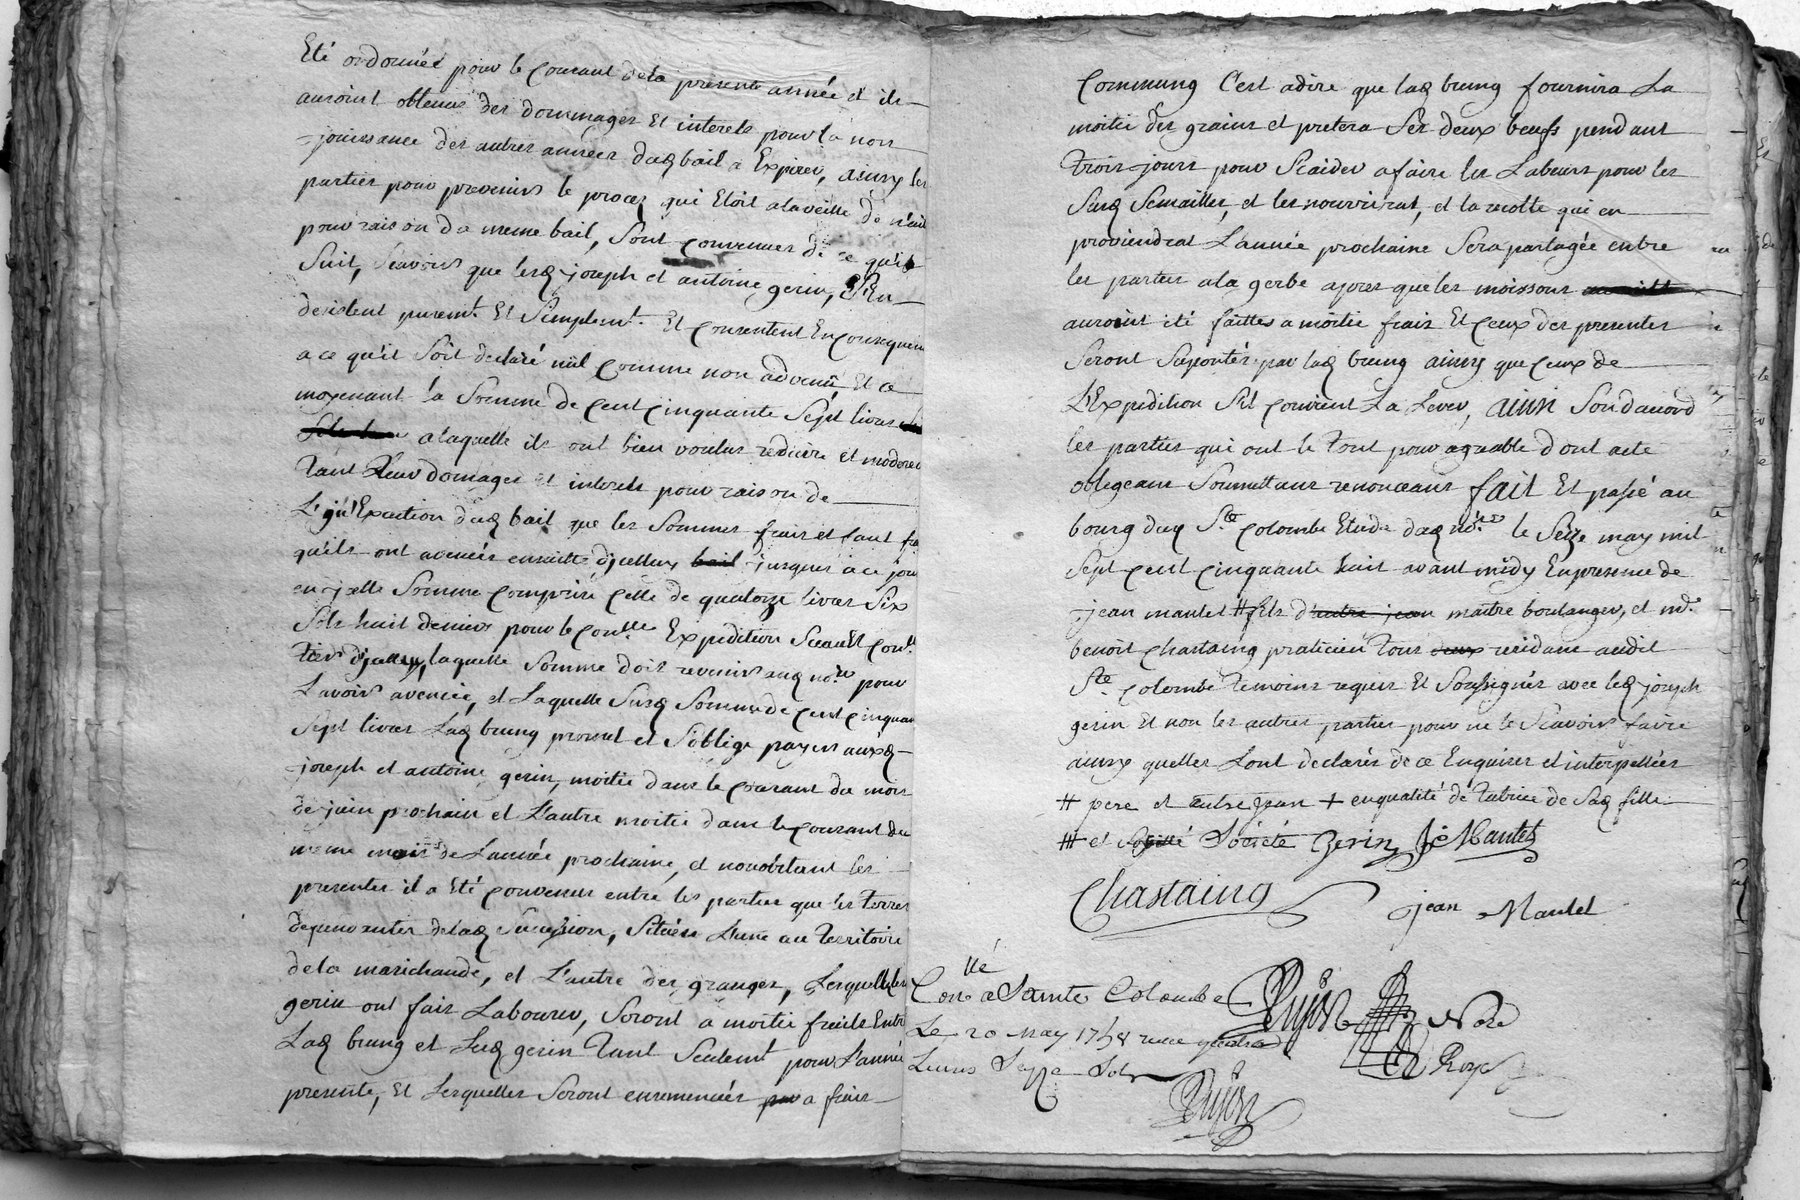 Eté ordonnée pour le courant dela presente année et ils
auroint obtenus des dommages Et interets pour la non
jouissance des autres années dud bail a Expirer, ainsy les
parties pour prevenir le procez qui Etoit alaveille de
pour raison du meme bail, Sont convenues de ce qu'il
Suit, Scavoir que lesd joseph et antoine gerin, S'En
desistent puremt. Et Simplemt. Et consentent En
a ce qu'il Soit declaré nul comme non advenu Et ce
moyenant la Somme de cent cinquante Sept livres
alaquelle ils ont bien voulus reduire et moderer
tant leur domages et interets pour raison de
L'inExecution dud bail que les Sommes frais et
qu'ils ont avancés ensuitte d'jcelluy bail jusques a ce jour
en jcelle Somme comprise celle de quatorze livres Six
Sols huit deniers pour le conlle Expedition Sceau Et
d'jcelluy, laquelle Somme doit revenir aud nore. pour
L'avoir avancée, et Laquelle Susd Somme de cent cinquante
Sept livres Lad brung promet et S'oblige payer auxd
joseph et antoine gerin, moitié dans le courant du mois
de juin prochain et L'autre moitié dans le courant du
meme mois de L'année prochaine, et nonobstant les
presentes il a Eté convenus entre les parties que les terres
dependantes delad Succession, Situées L'une au Territoire
dela marichaude, et L'autre des granges, Lesquelles les
gerin ont fait Labourer, Seront a moitié fruits Entre
Lad brung et Lesd gerin tant Seulemt pour L'année
presente, Et Lesquelles Seront ensemencées a frais
Communs C'est adire que lad brung fournira La
moitié des grains et pretera Ses deux beufs pendant
trois jours pour S'aider afaire les Labours pour les
Susd Semailles, et les nourrirat, et la recolte qui en
proviendrat L'année prochaine Sera partagée entre
les parties ala gerbe apres que les moissons
auroint été faittes a moitié frais Et ceux des presentes
Seront Suportés par lad brung ainsy que ceux de
L'Expedition S'il convient La Lever, ainsi Sond'acord
les parties qui ont le tout pour agreable dont acte
obligeans Soumettans renonceans fait Et passé au
bourg dud Ste colombe Etude dud nore. le Seize may mil
Sept cent cinquante huit avant midy En presence de
jean mantel # fils d'autre jean maitre boulanger, et mr.
benoit chastaing praticien tous deux residans audit
Ste. colombe temoins requis Et Soussignés avec led joseph
gerin Et non les autres parties pour ne le Scavoir faire
ainsy quelles Sont declarés de ce Enquises et interpellées
# pere et autre jean + enqualité de tutrice de Sad fille
# et Société Gerin Je Mantel
Chastaing
jean Mantel
Conllé a Sainte Colombe
Dujon
Nore
Le 20 May 1758 recu quatre
Livres Seize Sols
Roy
Dujon